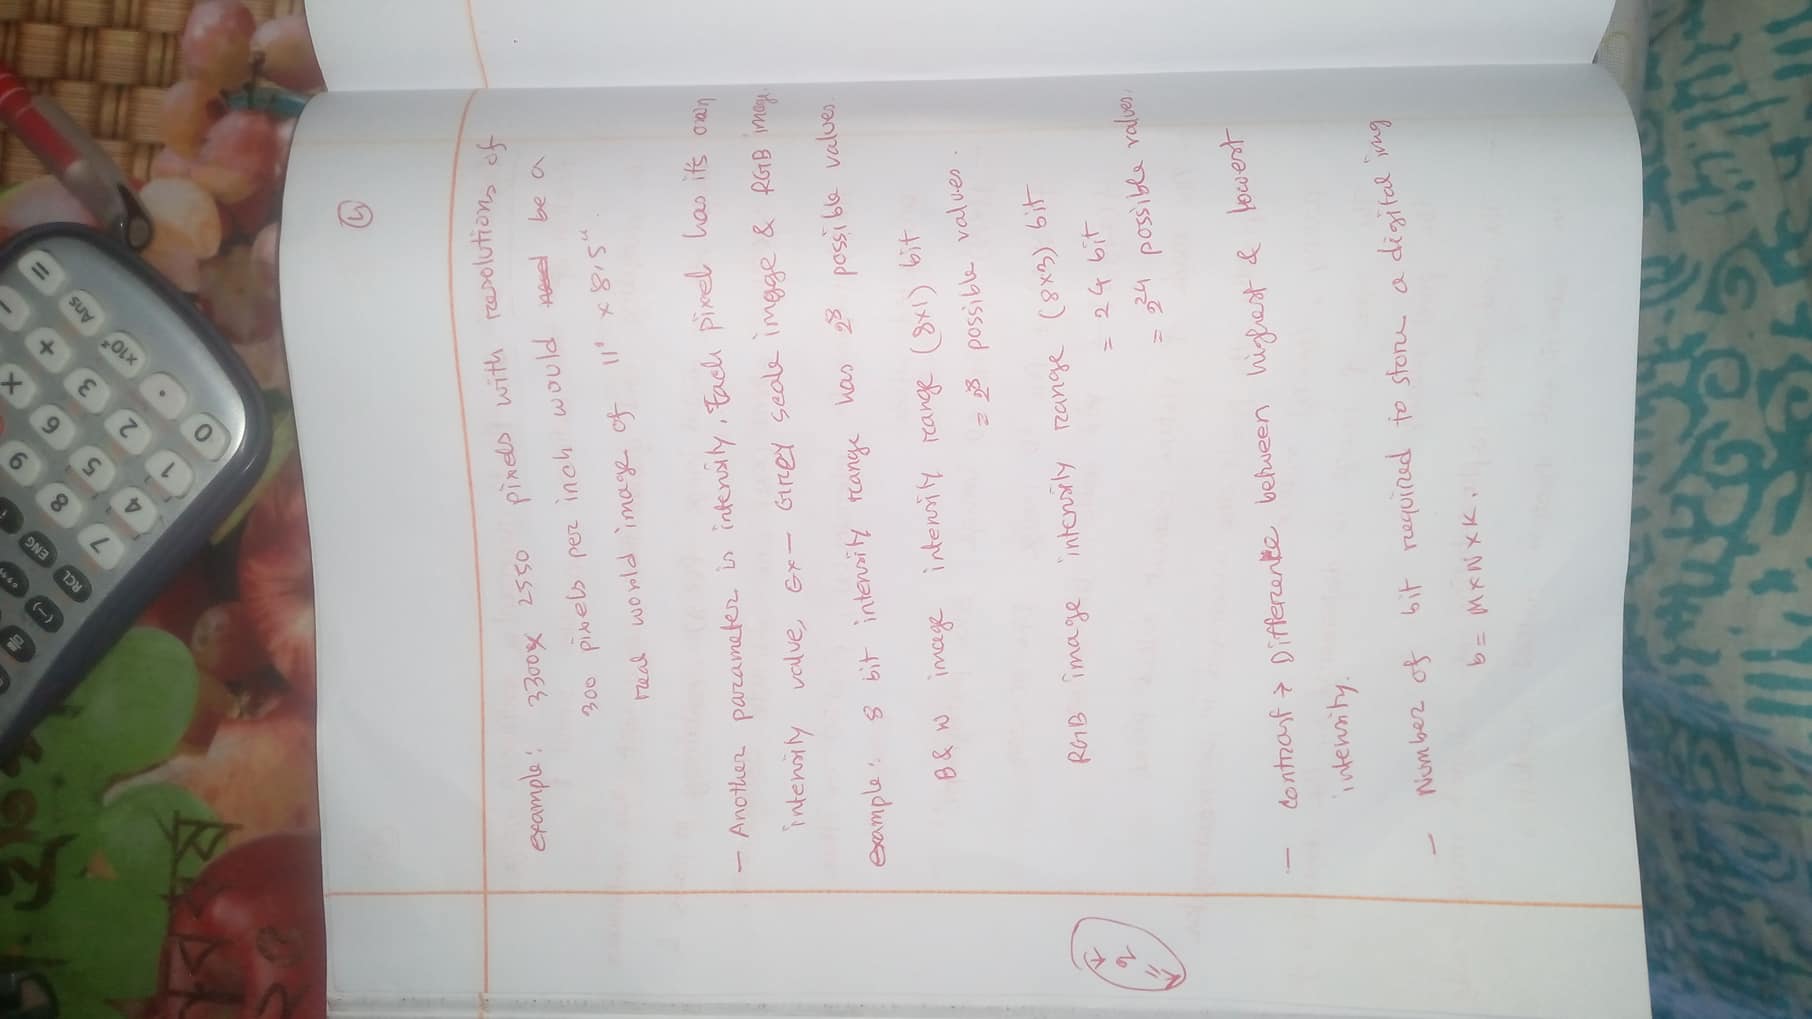 5
example: 3300x 2550 pixels with resolutions of
300 pixels per inch would be a
real world image of 11" x 8.5"
- Another parameter is intensity, Each pixel has it's own
intensity value, Ex- Grey scale image & RGB image.
example: 8 bit intensity range has 2^8 possible values.
B & W image intensity range (8x1) bit
= 2^8 possible values.
RGB image intensity range (8x3) bit
= 24 bit
= 2^24 possible values.
- contrast → Difference between highest & lowest
intensity.
- Number of bit required to store a digital img
b = M x N x K.
=
Ans
x10ˣ
-
+
3
.
0
X
6
2
1
9
5
4
8
7
ENG
RCL
(-)